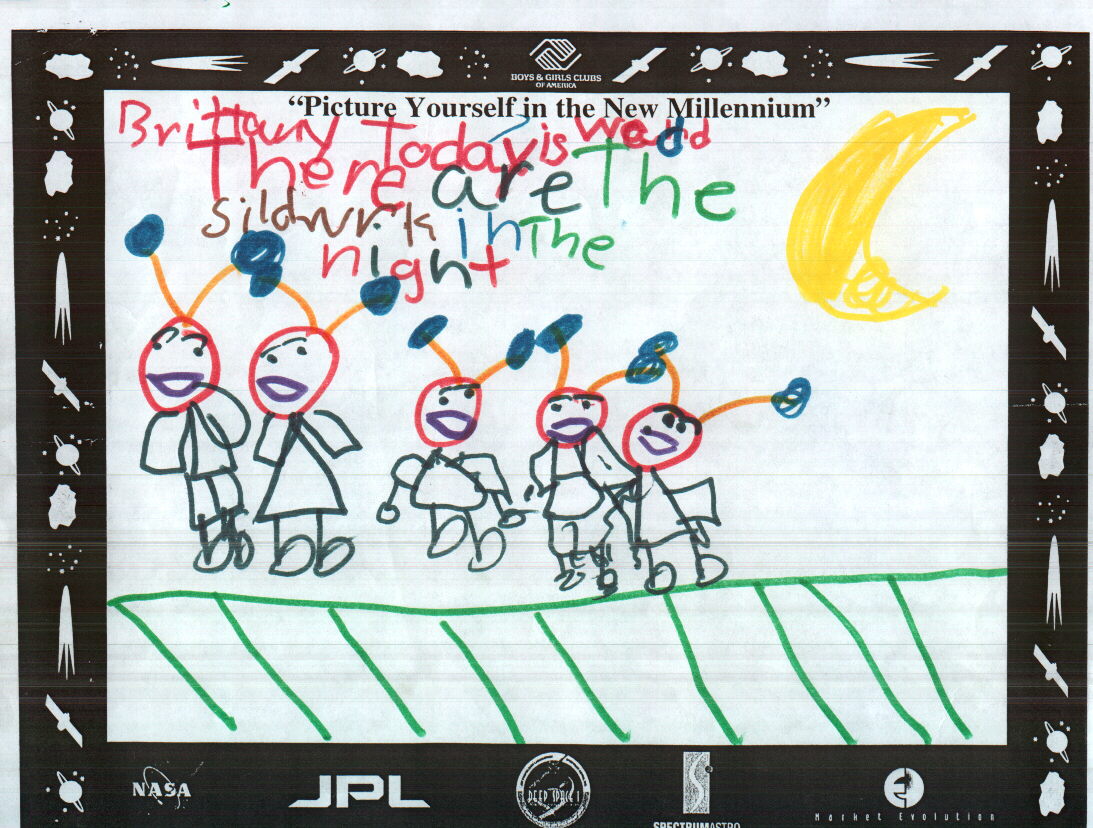 BOYS & GIRLS CLUBS
OF AMERICA
“Picture Yourself in the New Millennium”
Brittany Today is
There are The
sildwrk in The
night
NASA
JPL
DEEP SPACE 1
SPECTRUMASTRO
Market Evolution